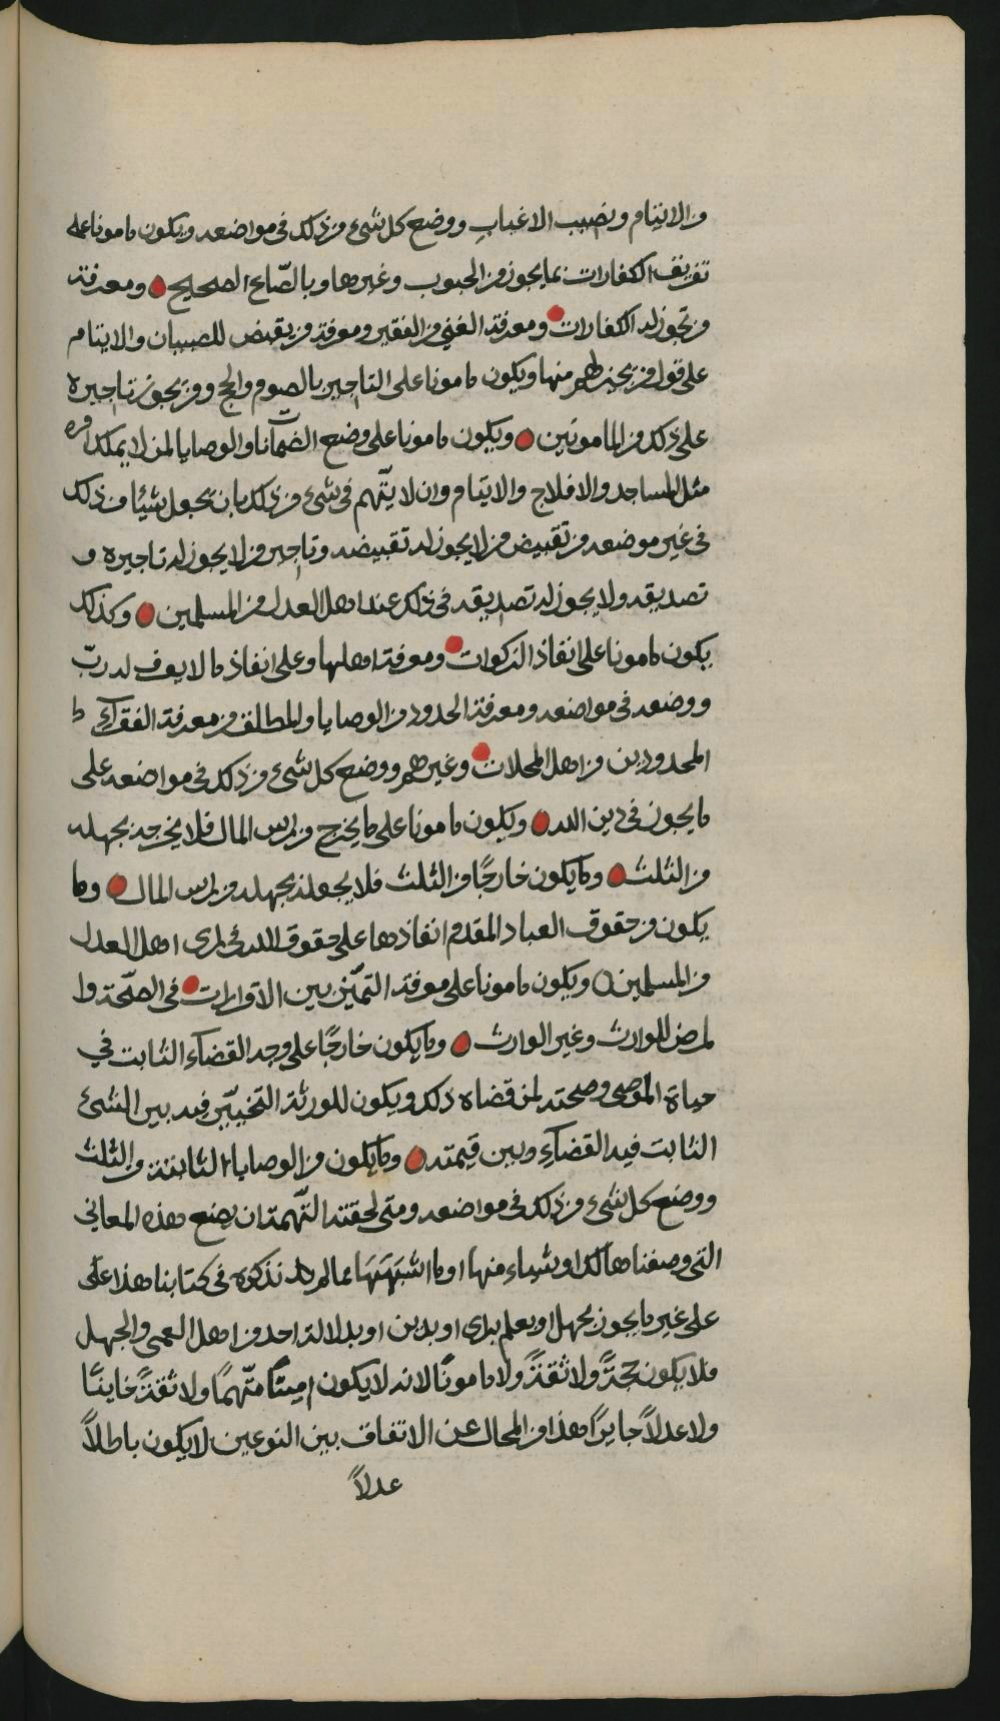 والايتام ونصيب الاغياب ووضع كل شيء من ذلك في مواضعه ويكون مامونا على
تفريق الكفارات بما يجوز من الحبوب وغيرها وبالصاع الصحيح ومعرفة
من تجوز له الكفارات ومعرفة الغني من الفقير ومعرفة من يقبض للصبيان والايتام
على قول من يجيز لهم منها ويكون مامونا على التاجير بالصوم والحج ومن يجوز تاجيره
على ذلك من المامونين ويكون مامونا على وضع الضمانات والوصايا لمن لا يملك امره
مثل المساجد والافلاج والايتام وان لا يتّهم في شيء من ذلك بان يجعل شيئا من ذلك
في غير موضعه من تقبيض من لا يجوز له تقبيضه وتاجير من لا يجوز له تاجيره و
تصديقه ولا يجوز له تصديقه في ذلك عند اهل العدل من المسلمين وكذلك
يكون مامونا على انفاذ الزكوات ومعرفة اهلها وعلى انفاذ ما لا يعرف له ربّ
ووضعه في مواضعه ومعرفة الحدود من الوصايا والمطلق من معرفة الفقراء
المحدودين من اهل المحلات وغيرهم ووضع كل شيء من ذلك في مواضعه على
ما يجوز في دين الله ويكون مامونا على ما يخرج من راس المال فلا يخرجه بجهله
من الثلث وما يكون خارجًا من الثلث فلا يجعله بجهله من راس المال وما
يكون من حقوق العباد المقدم انفاذها على حقوق الله في راي اهل العدل
من المسلمين ويكون مامونا على معرفة التميّز بين الاقرارات في الصّحة وا
لمرض للوارث وغير الوارث وما يكون خارجًا على وجه القضاء الثابت في
حياة الموصي وصحته لمن قضاه ذلك ويكون للورثة التخيّير فيه بين الشيء
الثابت فيه القضاء وبين قيمته وما يكون من الوصايا الثابتة من الثلث
ووضع كل شيء من ذلك في مواضعه ومتى لحقته التّهمة ان يضع هذه المعاني
التي وصفناها لك او شياء منها او ما اشبهها مما لم نذكره في كتابنا هذا على
على غير ما يجوز بجهل او بعلم براي او بدين او بدلالة احد من اهل العمى والجهل
فلا يكون حجةً ولا ثقةً ولا مامونًا لانه لا يكون امينًا متّهمًا ولا ثقةً خاينًا
ولا عدلاً جايرًا هذا من المحال عن الاتفاق بين النوعين لا يكون باطلاً
عدلاً